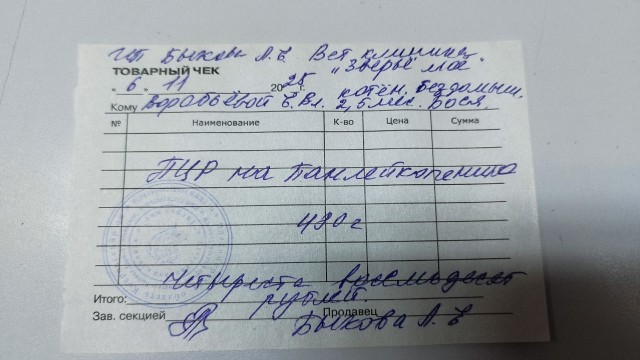 ИП Быкова Л. Е. Вет клиника
"Зверьё моё"
ТОВАРНЫЙ ЧЕК
" 6 " 11 2025 котён. бездомын.
Кому Воробьёвой Е. Вл. 2,5 мес. Бося
№ Наименование К-во Цена Сумма
ПЦР на Панлейкопению
480=
Четыреста восемьдесят
Итого: рублей.
Зав. секцией Продавец Быкова Л. Е